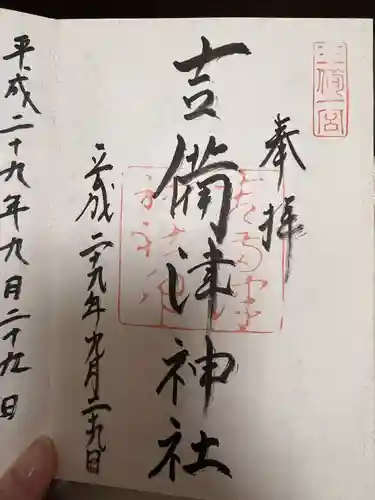 三備一宮
奉拝
吉備津神社
平成二十九年九月二十九日
平成二十九年九月二十九日